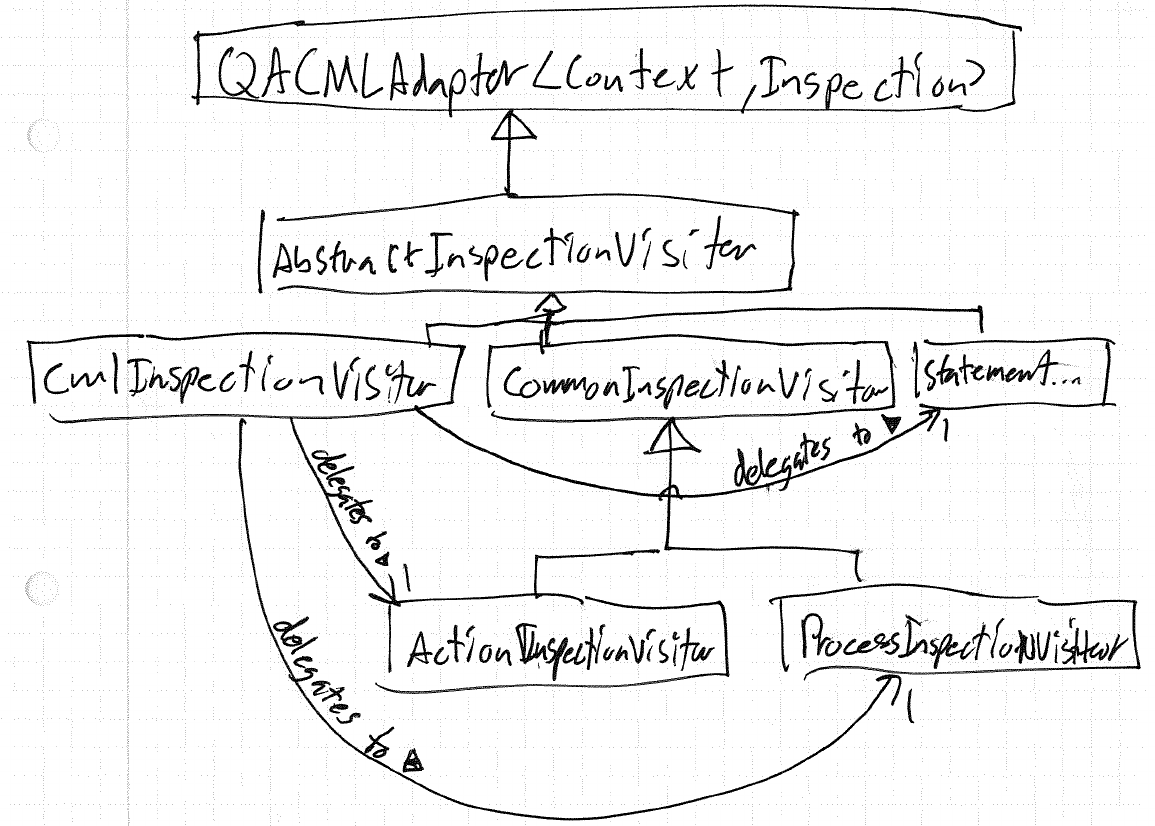 QACMLAdaptor<Context,Inspection>
AbstractInspectionVisitor
CmlInspectionVisitor
CommonInspectionVisitor
Statement...
delegates to
1
delegates to
1
ActionInspectionVisitor
ProcessInspectionVisitor
delegates to
1